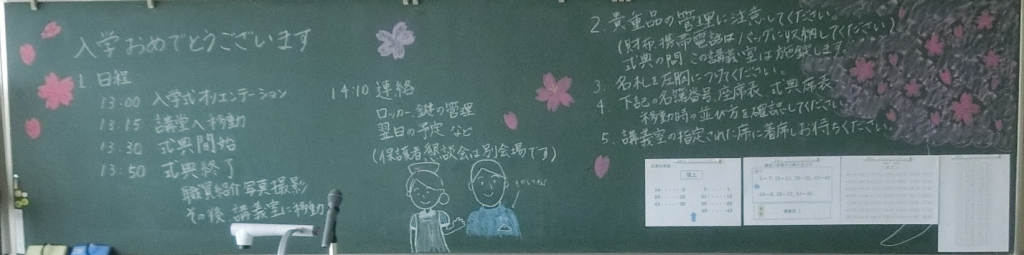 入学おめでとうございます
1. 日程
13:00 入学式オリエンテーション
13:15 講堂へ移動
13:30 式典開始
13:50 式典終了
職員紹介 写真撮影
その後 講義室に移動
14:10 連絡
ロッカー鍵の管理
翌日の予定 など
(保護者懇談会は別会場です)
2. 貴重品の管理に注意してください。
(財布・携帯電話はバッグに収納してください)
式典の間この講義室は施錠します。
3. 名札を左胸につけてください。
4. 下記の名簿番号 座席表 式典席表
移動時の並び方を確認してください
5. 講義室の指定された席に着席しお待ちください。